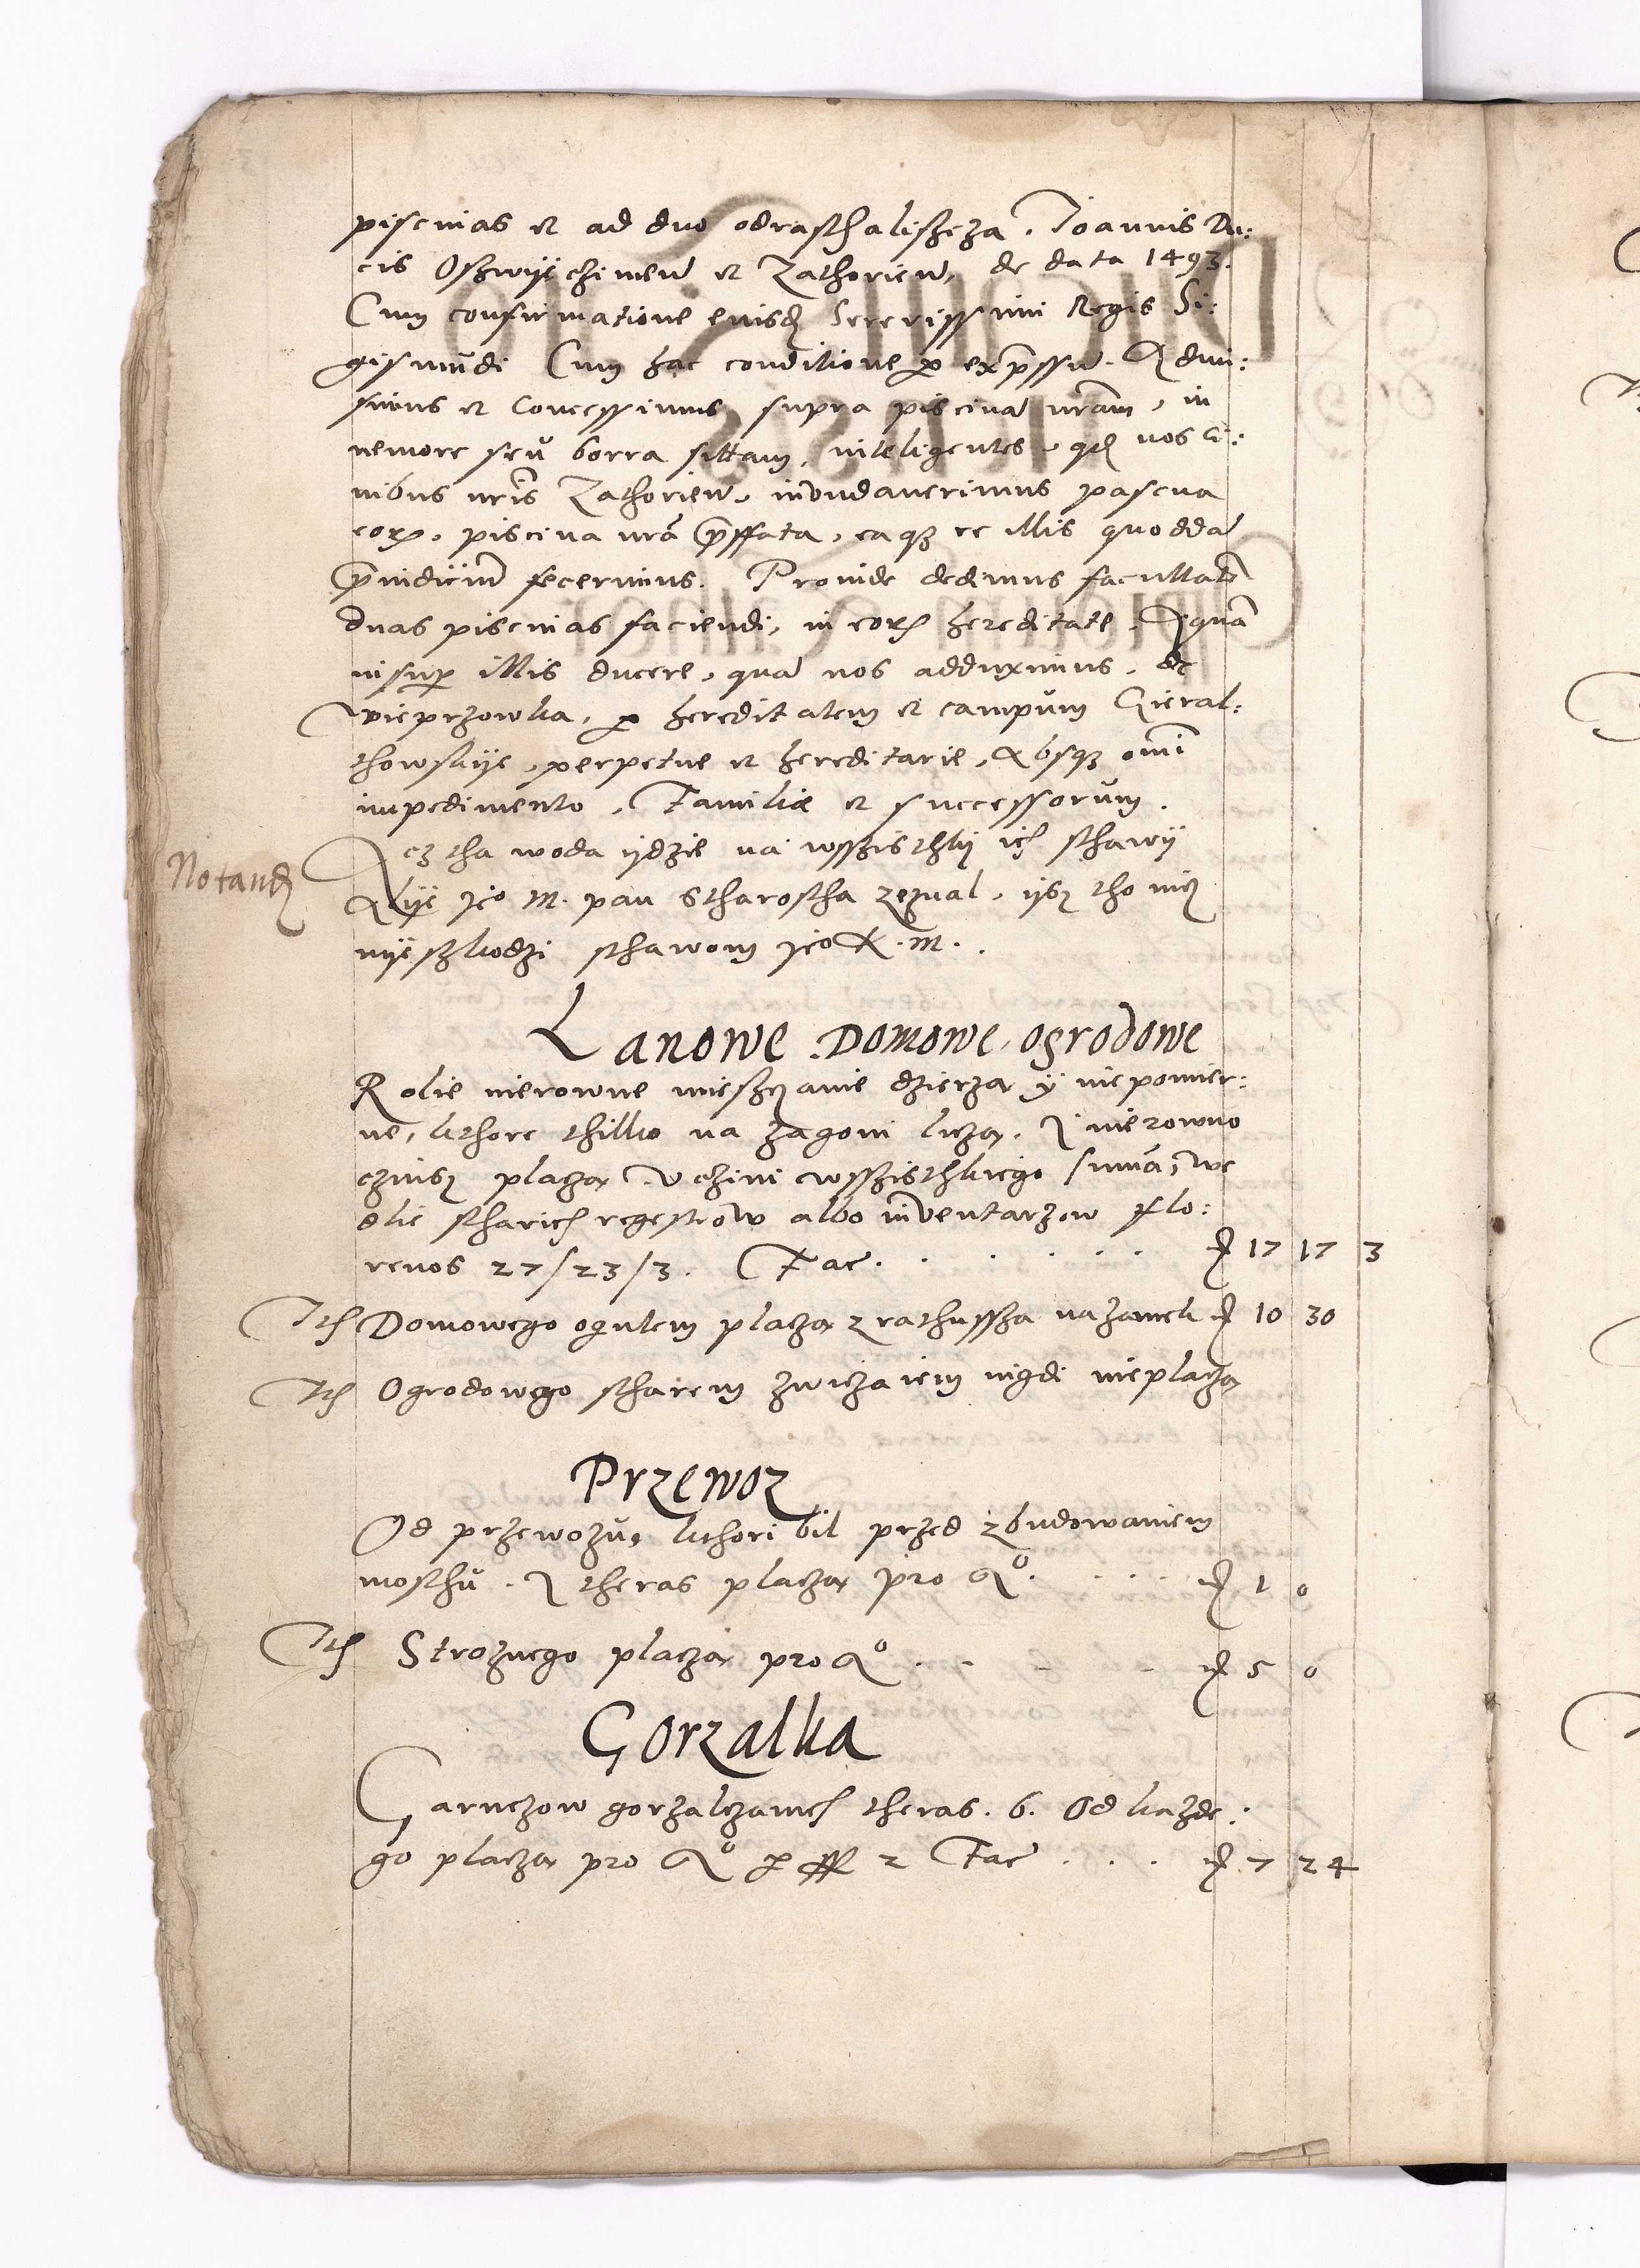 piscinas et ad duo odrasthaliszcza. Joannis Du:
cis Oszwyęchimeñ et Zathorieñ, de data 1493.
Cum confirmatione eiusd Sererissimi Regis Si:
gismūdi Cum hac conditione p exp̄ssū. Admi:
simus et concessimus supra piscinā nr̄am, in
nemore seu borra sittam, inteligentes, qd nos ci:
uibus nr̄is Zathorieñ, inundauerimus pascua
eor, piscina nrā p̄ffata, eaq re illis quoddā
p̄iudiciū fecerimus. Proinde dedimus facultatē
duas piscinas faciendi, in eor hereditate, Aquā
insup illis ducere, quā nos adduximus, de
Wieprzowka, p hereditatem et campum Gieral:
thowskye, perpetue et hereditarie, Absq omī
impedimento, Familiæ et successorum.
Notand
Acz tha woda ydzie na wsszisthky ich sthawy
Alye Jeo M. pan Stharostha zeznal, ysz tho nicz
nyeszkodzi sthawom Jeo K. M.
Lanowe Domowe, ogrodowe
Rolie nierowne mieszczanie dzierza y niepomier:
ne, kthore thilko na zagoni licza, J nierowno
czinsz placza, Uczini wsszisthkiego summa, we
dlie stharich regestrow albo inventarzow flo:
renos 27/23/3. Fac. . . . . . 17 17 3
Ith Domowego ogulem placza z rathussza na zamek 10 30
Ith Ogrodowego starem zwiczaiem nigdi nieplacza
Przewoz
Od przewozu, kthori bil przed zbudowaniem
mosthu. J theras placza pro Aº. . . . 1 0
Ith Stroznego placza pro Aº . . . . 5 0
Gorzalka
Garnczow gorzalczanich theras. 6. Od kazde:
go placza pro Aº p 2 Fac . . . 7 24